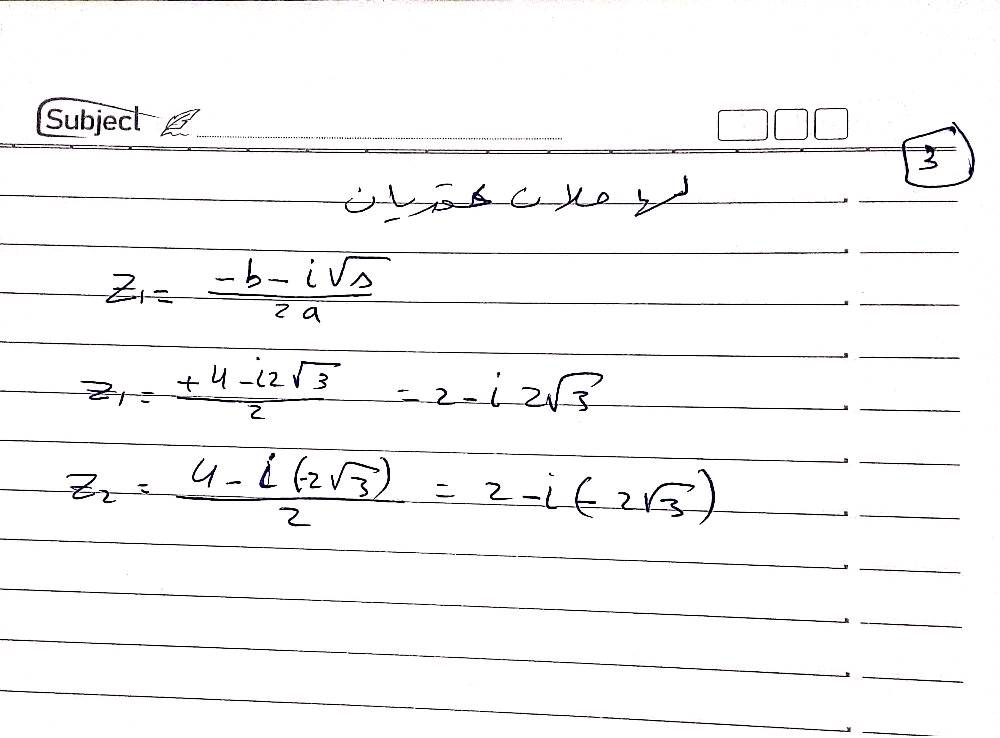 Subject
3
لها حلان عقديان
Z₁ = (-b - i√Δ) / 2a
Z₁ = (+4 - i2√3) / 2 = 2 - i 2√3
Z₂ = (4 - i(-2√3)) / 2 = 2 - i(-2√3)